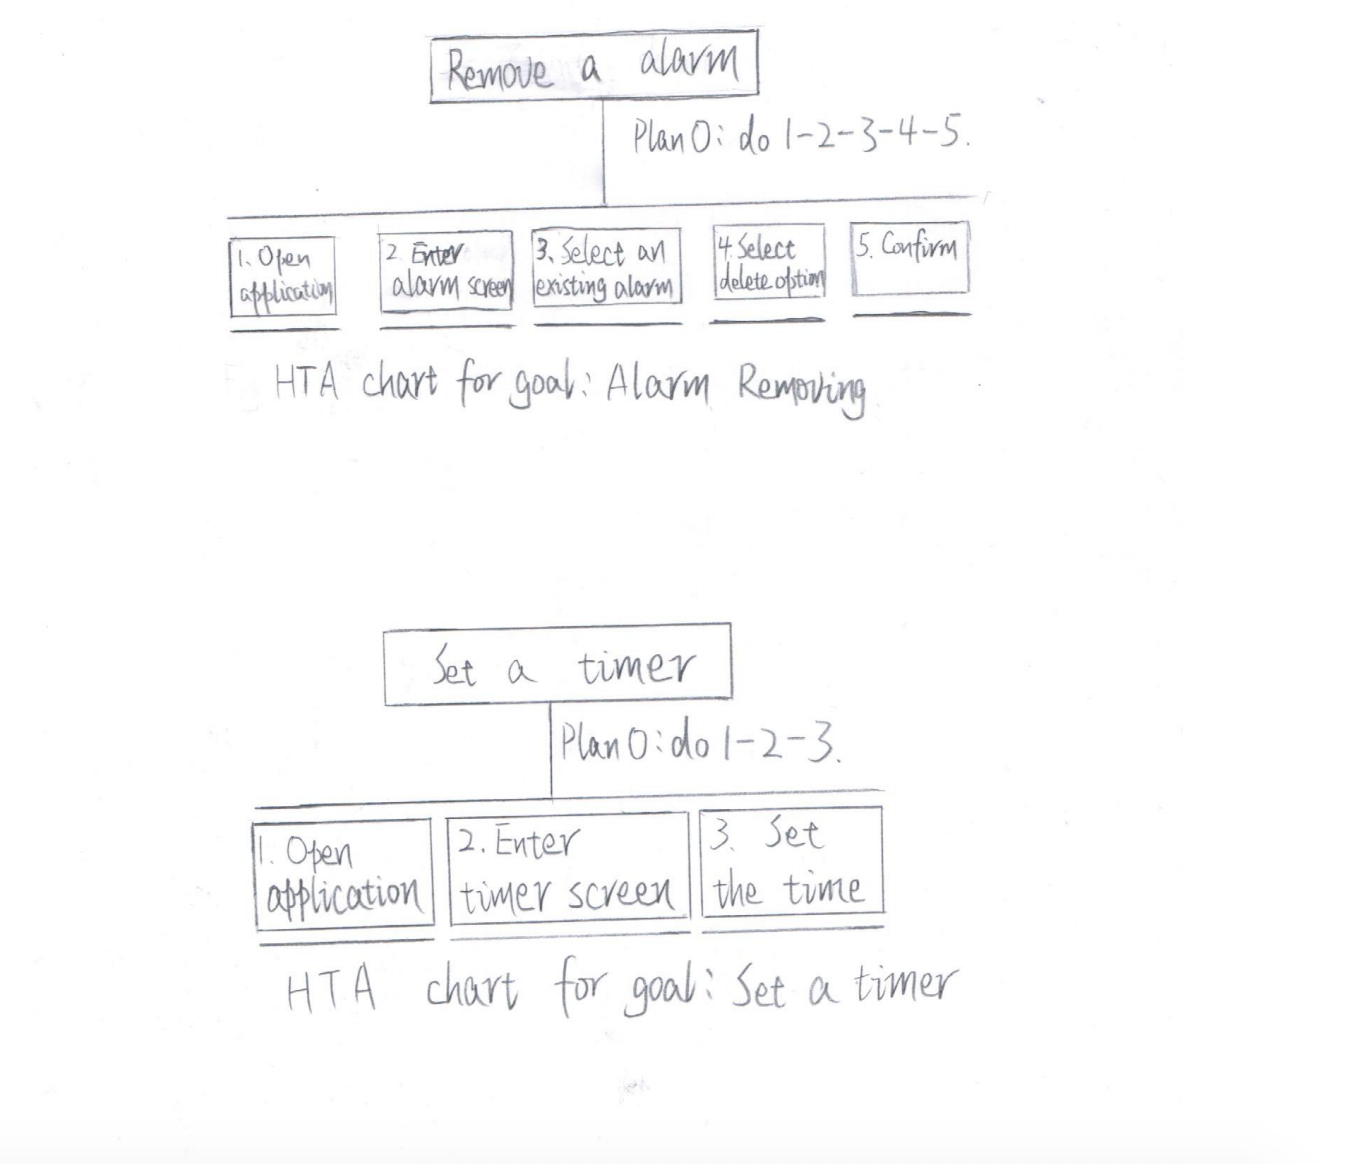 Remove a alarm
Plan 0: do 1-2-3-4-5.
1. Open
application
2. Enter
alarm screen
3. Select an
existing alarm
4. Select
delete option
5. Confirm
HTA chart for goal: Alarm Removing
Set a timer
Plan 0: do 1-2-3.
1. Open
application
2. Enter
timer screen
3. Set
the time
HTA chart for goal: Set a timer